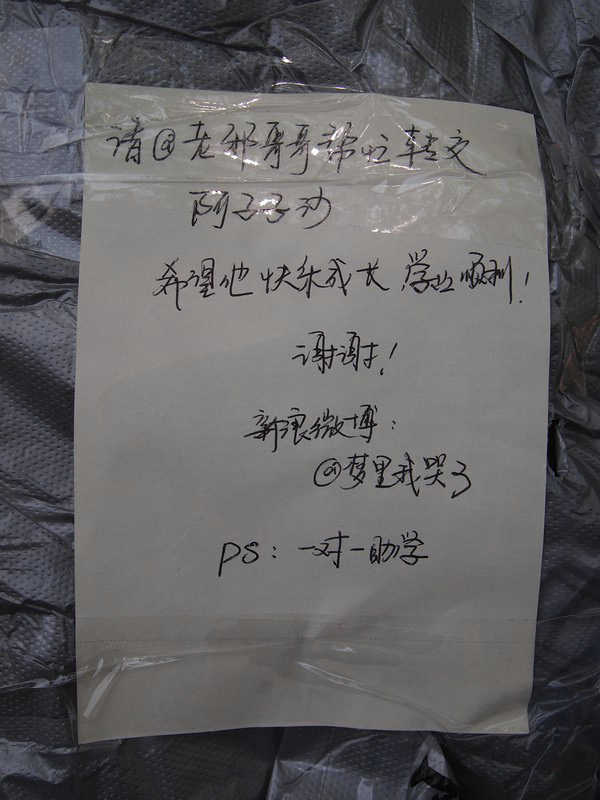 请@老邪哥哥帮忙转交
阿子子沙
希望他快乐成长 学业顺利!
谢谢!
新浪微博:
@梦里我哭了
PS: 一对一助学